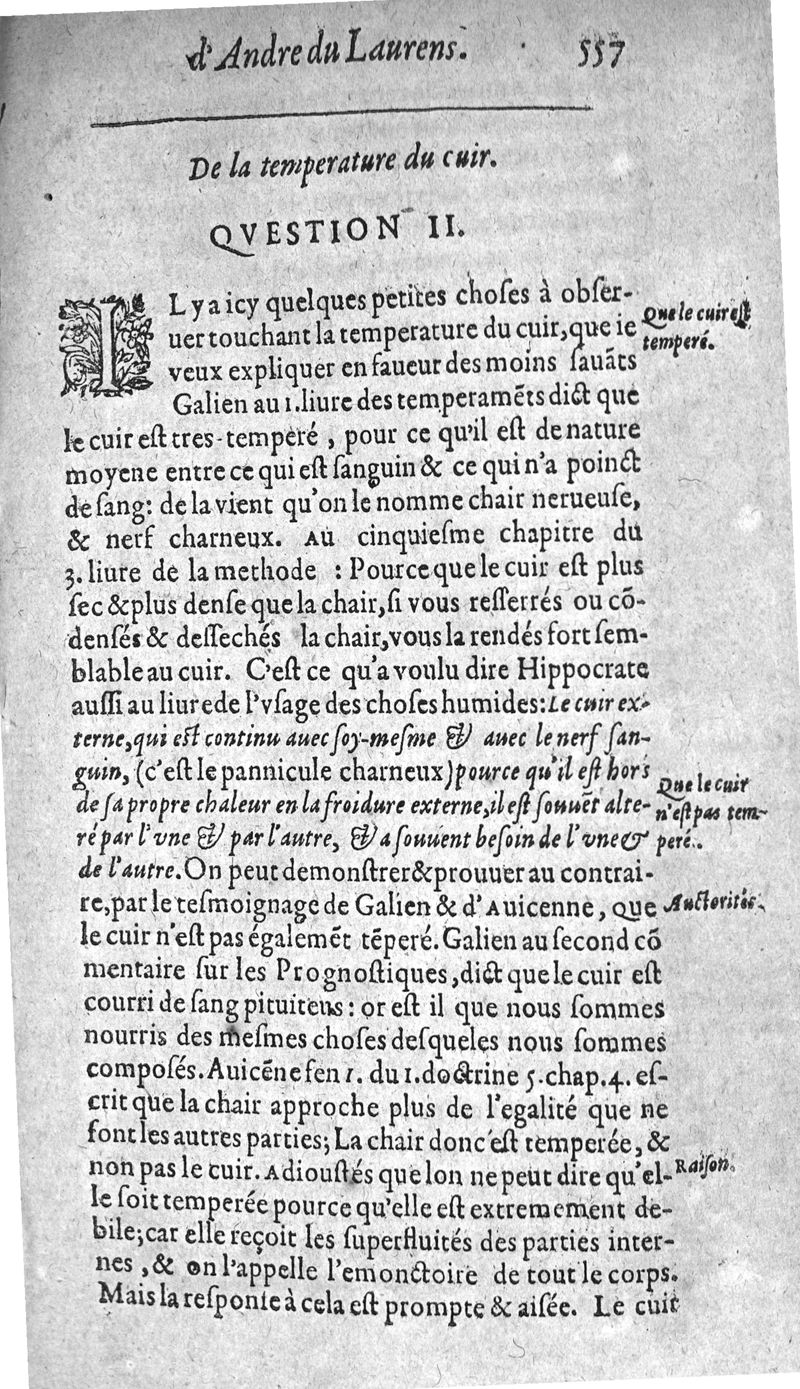 d'Andre du Laurens. 557
De la temperature du cuir.
QVESTION II.
IL y a icy quelques petites choſes à obſer-
uer touchant la temperature du cuir, que ie
veux expliquer en faueur des moins ſauãts
Que le cuir eſt
temperé.
Galien au 1. liure des temperamẽts dict que
le cuir eſt tres-temperé, pour ce qu'il eſt de nature
moyene entre ce qui eſt ſanguin & ce qui n'a poinct
de ſang: de la vient qu'on le nomme chair nerueuſe,
& nerf charneux. Au cinquieſme chapitre du
3. liure de la methode : Pource que le cuir eſt plus
ſec & plus denſe que la chair, ſi vous reſſerrés ou cõ-
denſés & deſſechés la chair, vous la rendés fort ſem-
blable au cuir. C'eſt ce qu'a voulu dire Hippocrate
auſſi au liure de l'vſage des choſes humides: Le cuir ex-
terne, qui eſt continu auec ſoy-meſme & auec le nerf ſan-
guin, (c'eſt le pannicule charneux) pource qu'il eſt hors
de ſa propre chaleur en la froidure externe, il eſt ſouuẽt alte-
ré par l'vne & par l'autre, & a ſouuent beſoin de l'vne &
de l'autre. On peut demonſtrer & prouuer au contrai-
Que le cuir
n'eſt pas tem-
peré.
re, par le teſmoignage de Galien & d'Auicenne, que
Authorités.
le cuir n'eſt pas égalemẽt tẽperé. Galien au ſecond cõ
mentaire ſur les Prognoſtiques, dict que le cuir eſt
courri de ſang pituiteus: or eſt il que nous ſommes
nourris des meſmes choſes deſqueles nous ſommes
compoſés. Auicẽne fen 1. du 1. doctrine 5. chap. 4. eſ-
crit que la chair approche plus de l'egalité que ne
font les autres parties; La chair donc eſt temperée, &
non pas le cuir. Adiouſtés que lon ne peut dire qu'el-
Raiſon.
le ſoit temperée pource qu'elle eſt extremement de-
bile; car elle reçoit les ſuperfluités des parties inter-
nes, & on l'appelle l'emonctoire de tout le corps.
Mais la reſponſe à cela eſt prompte & aiſée. Le cuir